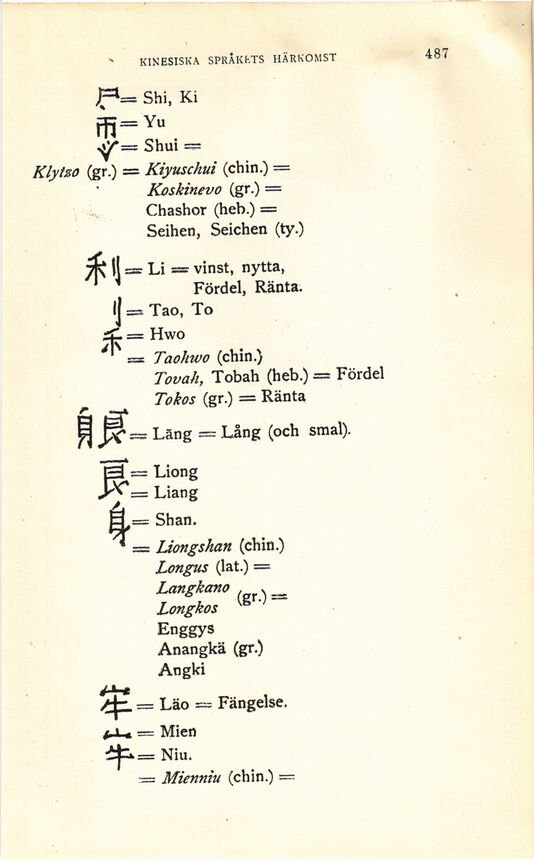 KINESISKA SPRÅKETS HÄRKOMST 487
尸 = Shi, Ki
雨 = Yu
= Shui =
Klytzo (gr.) = Kiyuschui (chin.) =
Koskinevo (gr.) =
Chashor (heb.) =
Seihen, Seichen (ty.)
利 = Li = vinst, nytta,
Fördel, Ränta.
刂 = Tao, To
禾 = Hwo
= Taohwo (chin.)
Tovah, Tobah (heb.) = Fördel
Tokos (gr.) = Ränta
躴 = Läng = Lång (och smal).
良 = Liong
= Liang
身 = Shan.
= Liongshan (chin.)
Longus (lat.) =
Langkano
Longkos (gr.) =
Enggys
Anangkä (gr.)
Angki
牢 = Läo = Fängelse.
宀 = Mien
牛 = Niu.
= Mienniu (chin.) =